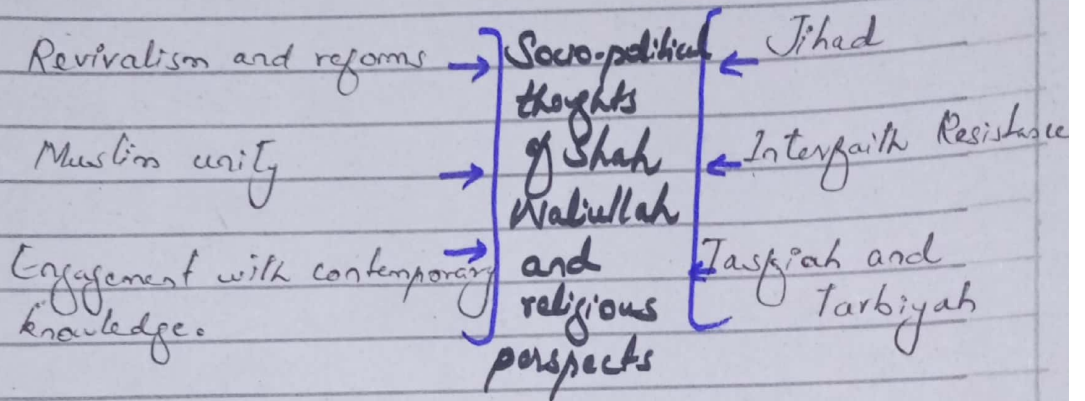 Revivalism and reforms
Muslim unity
Engagement with contemporary
knowledge.
Socio-political
thoghts
of Shah
Waliullah
and
religious
perspects
Jihad
Interfaith Resistance
Taskiah and
Tarbiyah